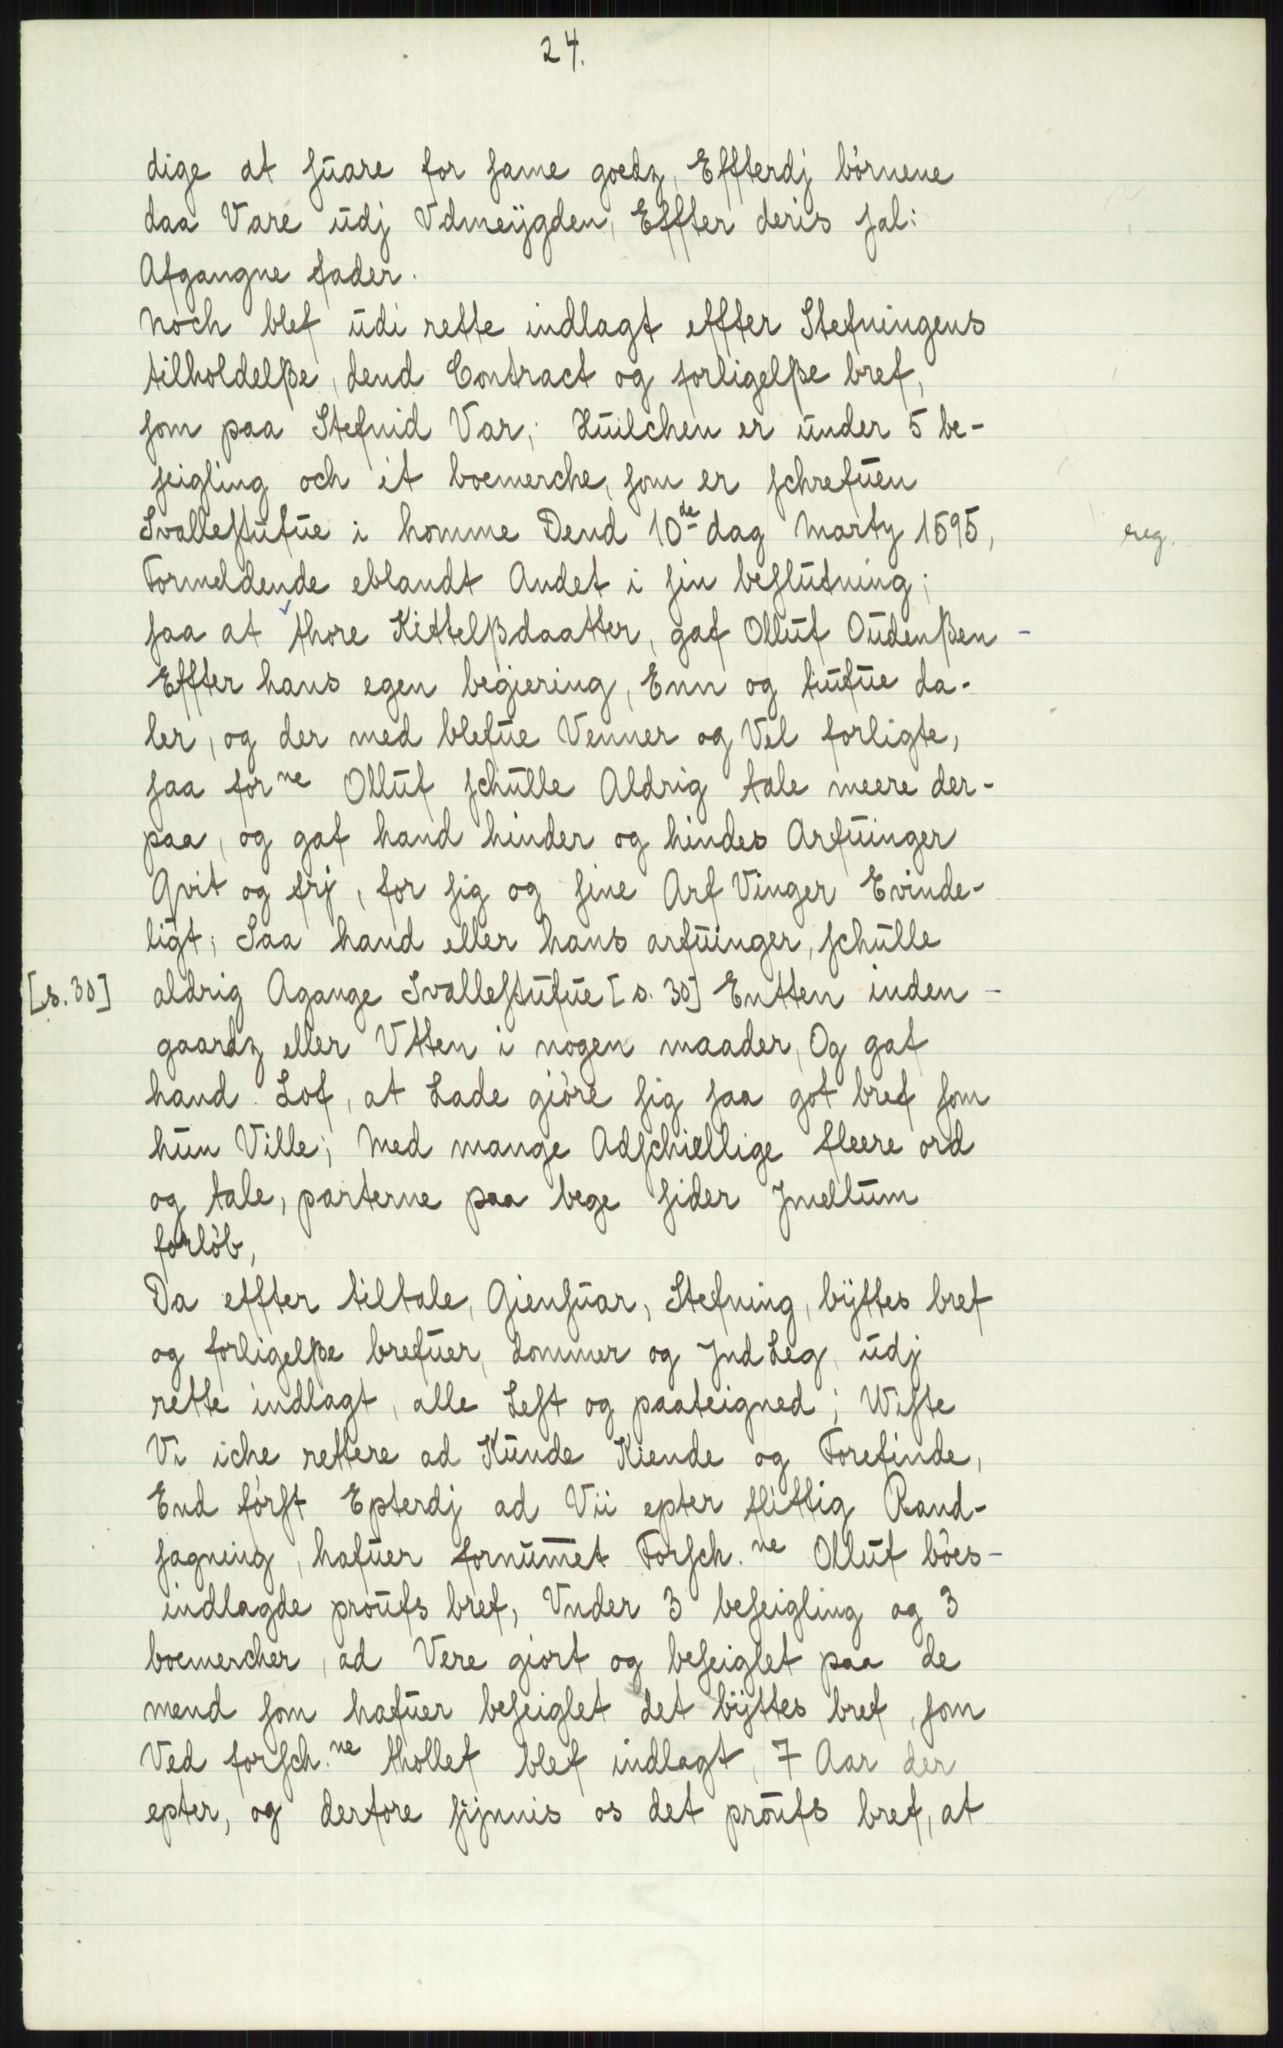 24.
dige at suare for same goedz, Effterdj börnene
daa Vare udj Vdmeÿgden, Effter deris sal:
Afgangne fader.
Noch blef udi rette indlagt effter Stefningens
tilholdelße, dend Contract og forligelße bref,
som paa Stefnid Var; Huilchen er under 5 be-
seigling och it boemerche, som er schrefuen
Svallestufue i homme Dend 10de dag Marty 1595,
reg.
Formeldende eblandt Andet i sin beslutning;
saa at thore Kittelßdaatter, gaf Olluf Oudenßen -
Effter hans egen begiering, Enn og tiufue da-
ler, og der med blefue Venner og Vel forligte,
saa forne Olluf schulle Aldrig tale meere der-
paa, og gaf hand hinder og hindes Arfuinger
Qvit og frj, for sig og sine Arf Vinger Evinde-
ligt; Saa hand eller hans arfuinger, schulle
[s. 30] aldrig Agange Svallestufue [s. 30] Entten inden -
gaardz eller Vtten i nogen maader, Og gaf
hand Lof, at Lade giöre sig saa got bref som
hun Ville; Med mange Adschiellige fleere ord
og tale, parterne paa bege sider Jmellum
forlöb,
Da effter tiltale, Giensuar, Stefning, bÿttes bref
og forligelße brefuer, dommer og Jnd Leg, udj
rette indlagt, alle Lest og paateigned; Wiste
Vi iche rettere ad Kunde Kiende og Forefinde,
End först Epterdj ad Vii epter flittig Rand-
sagning, hafuer fornum̅et Forsch.ne Olluf böes-
indlagde proufs bref, Vnder 3 beseigling og 3
boemercher, ad Vere giort og beseiglet paa de
mend som hafuer beseiglet det bÿttes bref, som
Ved forsch.ne thollef blef indlagt, 7 Aar der
epter, og derfore sÿnnis os det proufs bref, at